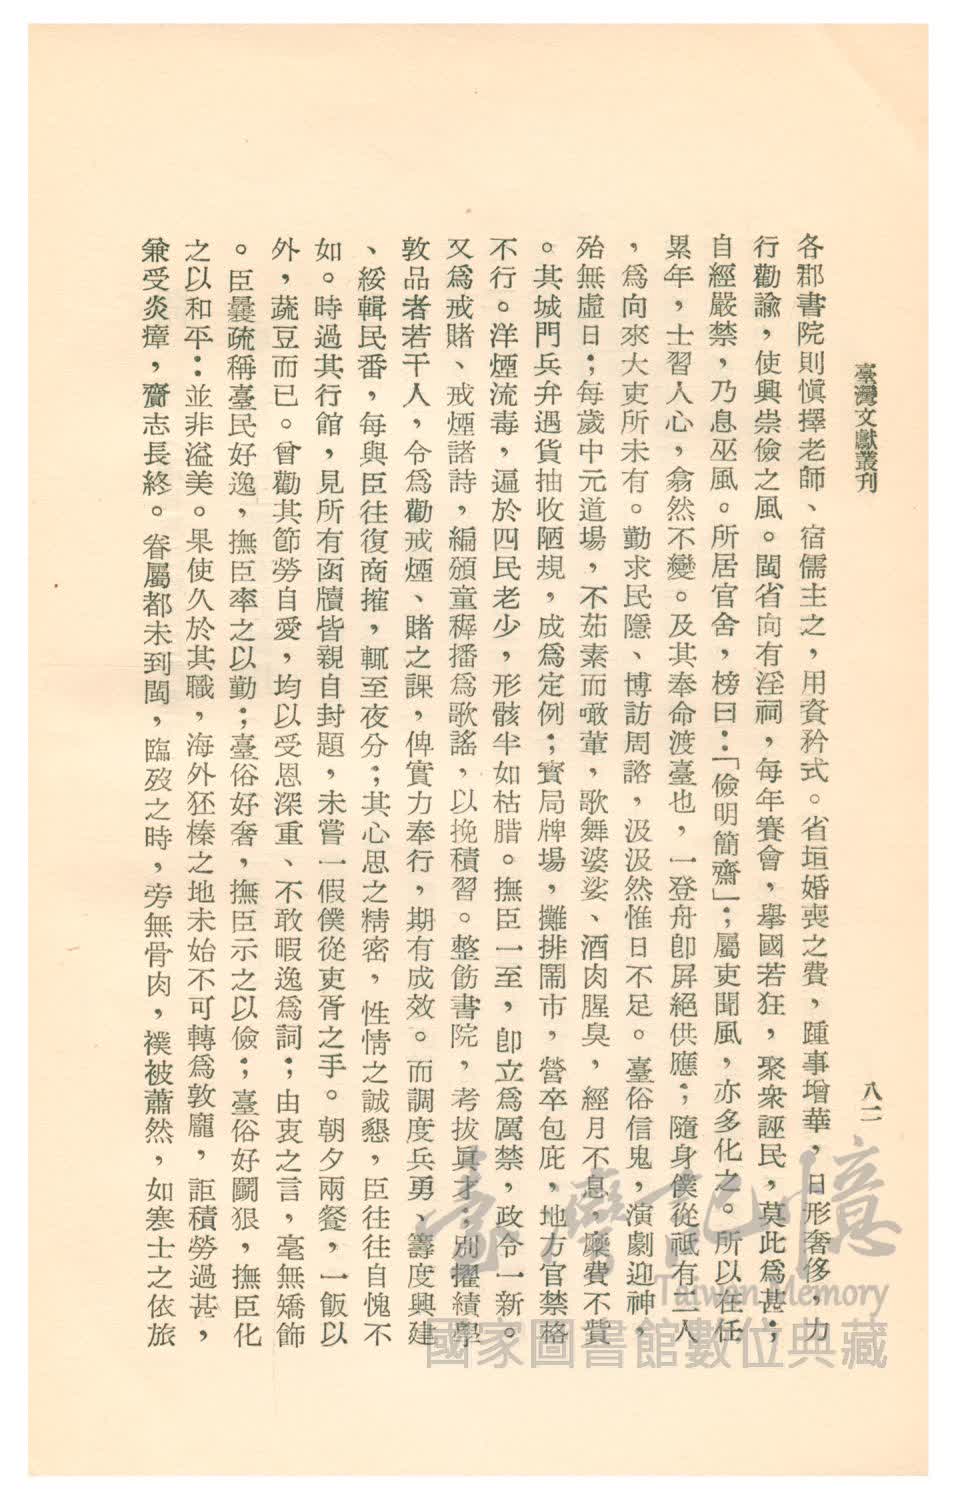 臺灣文獻叢刊
八二
各郡書院則愼擇老師、宿儒主之，用資矜式。省垣婚喪之費，踵事增華，日形奢侈，力
行勸諭，使興崇儉之風。閩省向有淫祠，每年賽會，擧國若狂，聚衆誣民，莫此爲甚；
自經嚴禁，乃息巫風。所居官舍，榜曰：「儉明簡齋」；屬吏聞風，亦多化之。所以在任
累年，士習人心，翕然不變。及其奉命渡臺也，一登舟卽屛絕供應；隨身僕從祇有二人
，爲向來大吏所未有。勤求民隱、博訪周諮，汲汲然惟日不足。臺俗信鬼，演劇迎神，
殆無虛日；每歲中元道場，不茹素而噉葷，歌舞婆娑、酒肉腥臭，經月不息，糜費不貲
。其城門兵弁遇貨抽收陋規，成爲定例；寶局牌場，攤排鬧市，營卒包庇，地方官禁格
不行。洋煙流毒，遍於四民老少，形骸半如枯腊。撫臣一至，卽立爲厲禁，政令一新。
又爲戒賭、戒煙諸詩，編頒童穉播爲歌謠，以挽積習。整飭書院，考拔眞才；別擢績學
敦品者若干人，令爲勸戒煙、賭之課，俾實力奉行，期有成效。而調度兵勇、籌度興建
、綏輯民番，每與臣往復商搉，輒至夜分；其心思之精密，性情之誠懇，臣往往自愧不
如。時過其行館，見所有函牘皆親自封題，未嘗一假僕從吏胥之手。朝夕兩餐，一飯以
外，蔬豆而已。曾勸其節勞自愛，均以受恩深重、不敢暇逸爲詞；由衷之言，毫無矯飾
。臣曩疏稱臺民好逸，撫臣率之以勤；臺俗好奢，撫臣示之以儉；臺俗好鬭狠，撫臣化
之以和平：並非溢美。果使久於其職，海外狉榛之地未始不可轉爲敦龐，詎積勞過甚，
兼受炎瘴，齎志長終。眷屬都未到閩，臨歿之時，旁無骨肉，襆被蕭然，如寒士之依旅
臺灣記憶
Taiwan Memory
國家圖書館數位典藏